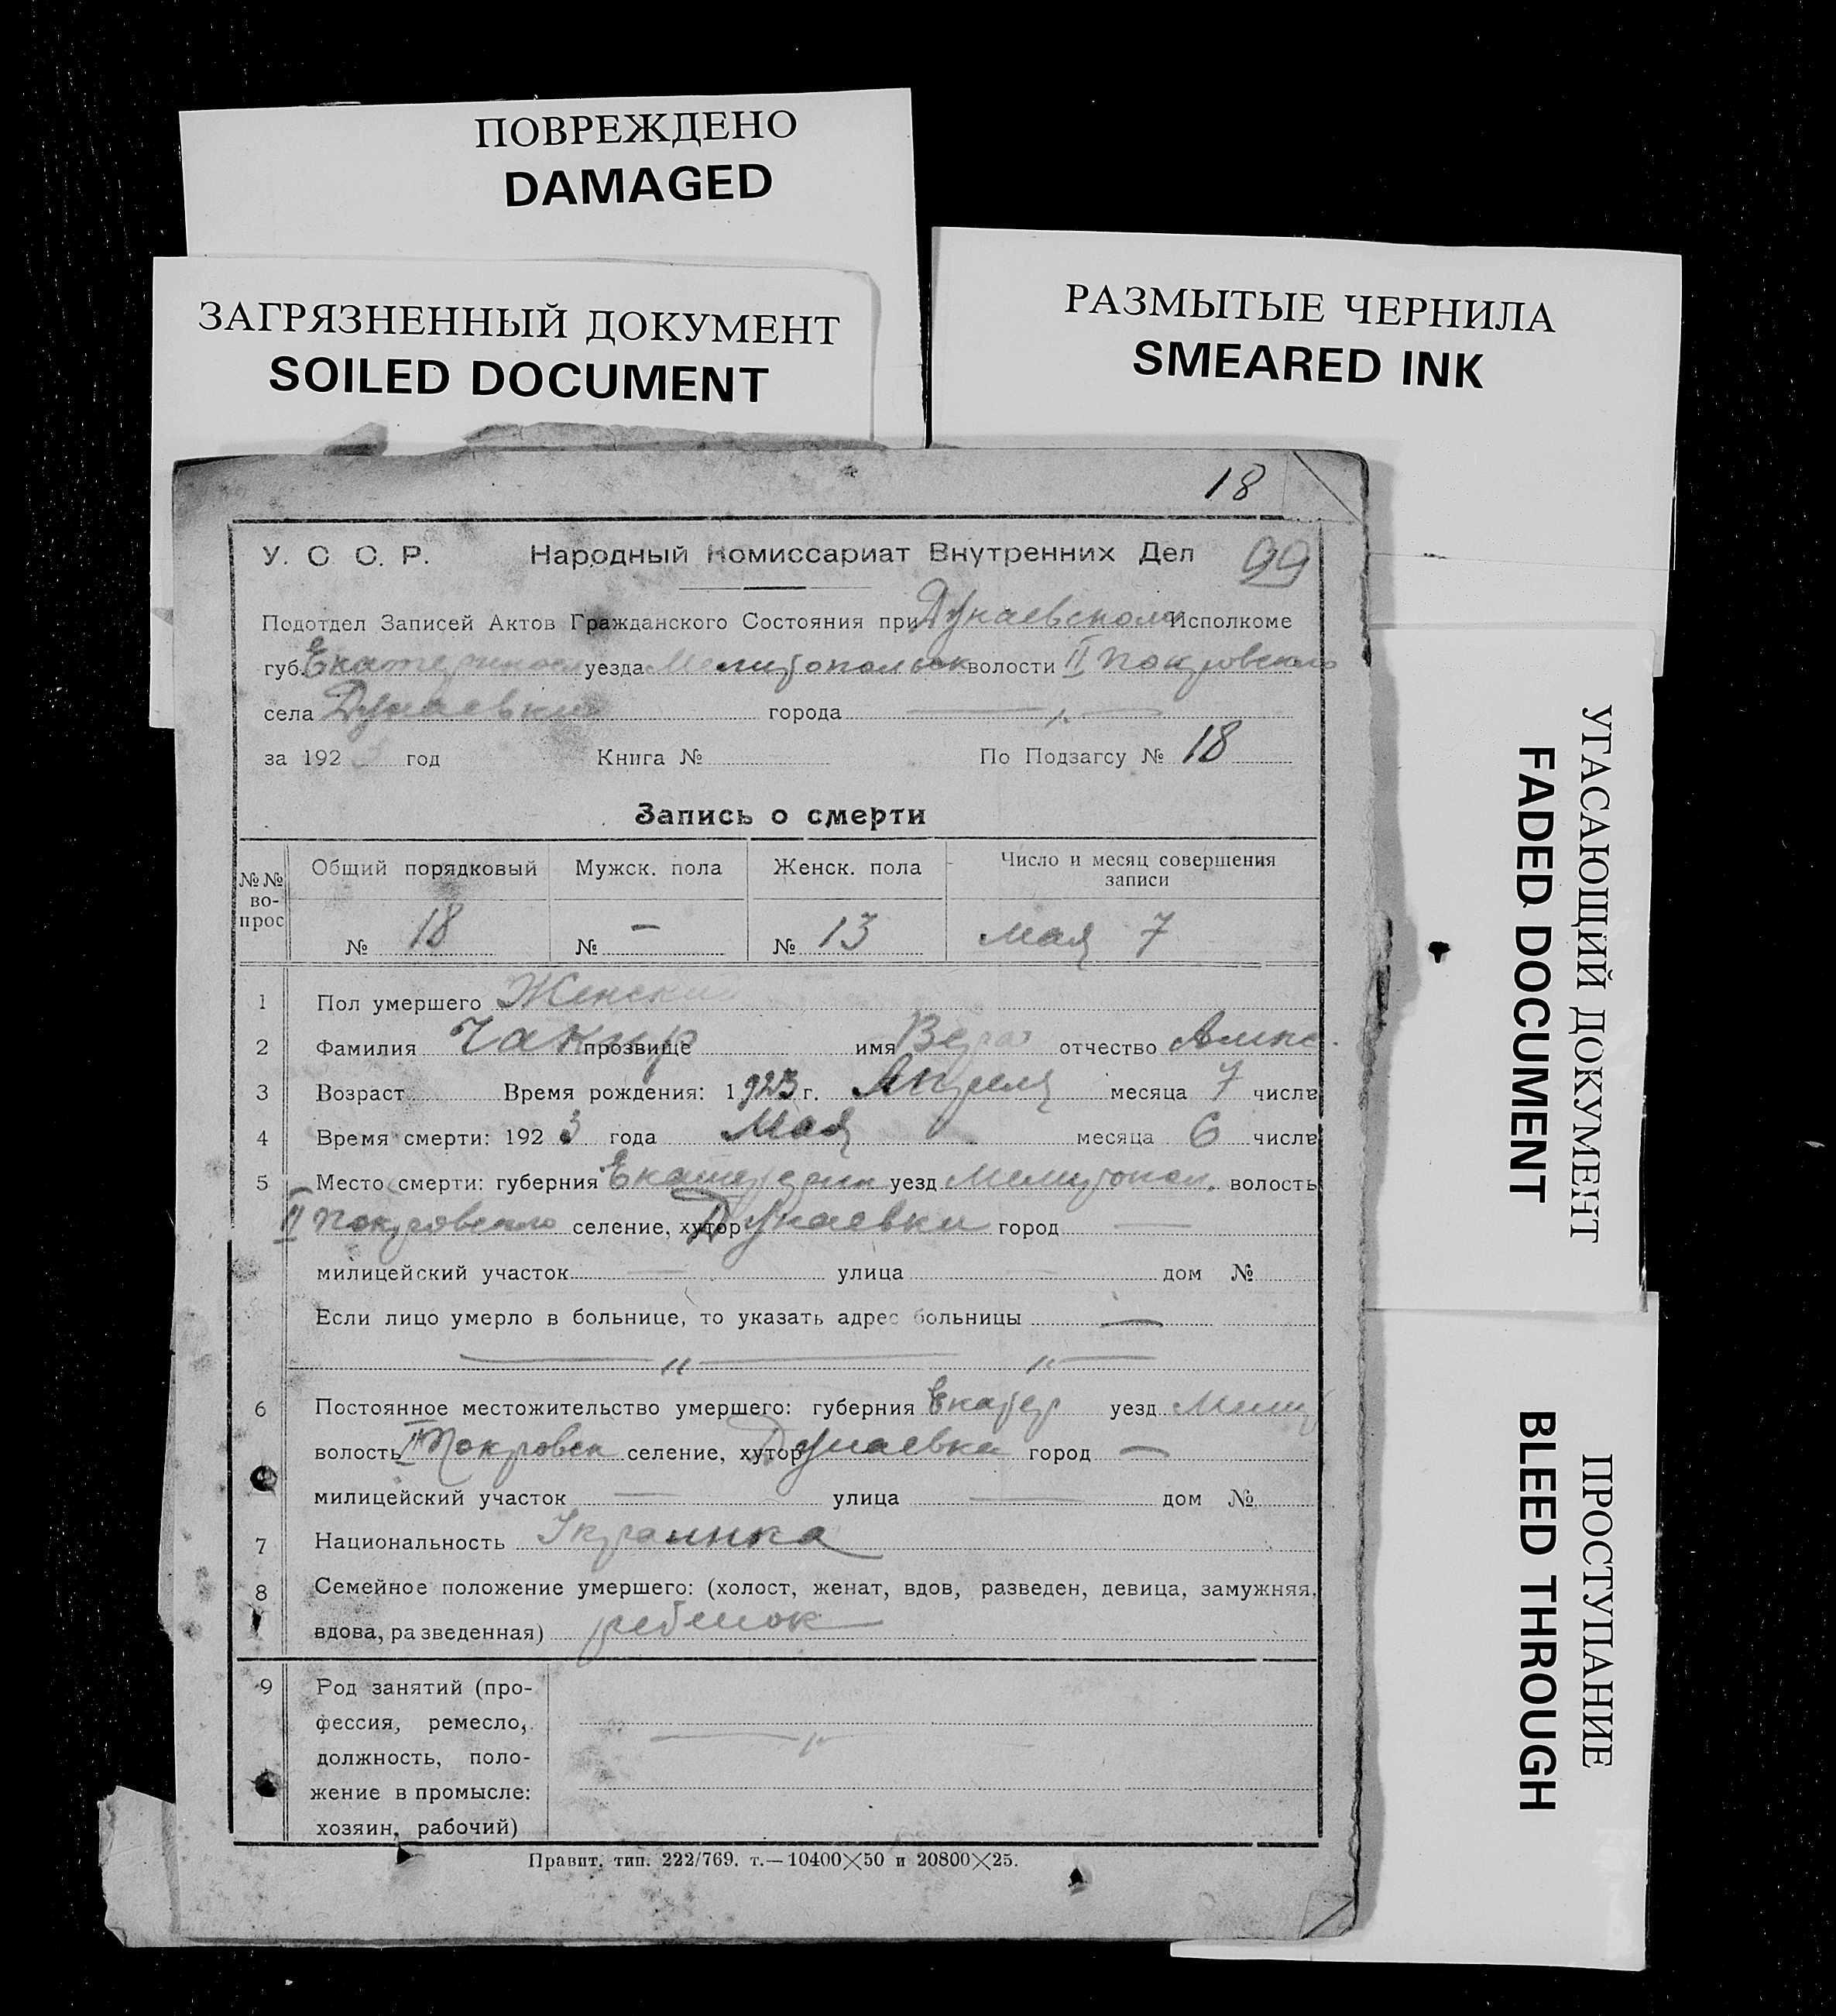 ПОВРЕЖДЕНО
DAMAGED
ЗАГРЯЗНЕННЫЙ ДОКУМЕНТ
SOILED DOCUMENT
РАЗМЫТЫЕ ЧЕРНИЛА
SMEARED INK
УГАСАЮЩИЙ ДОКУМЕНТ
FADED DOCUMENT
ПРОСТУПАНИЕ
BLEED THROUGH
18
У. С. С. Р. Народный Комиссариат Внутренних Дел 99
Подотдел Записей Актов Гражданского Состояния при Дунаевском Исполкоме
губ. Екатериносл уезда Мелитопольск волости II Покровского
села Дунаевки города
за 192 год Книга № По Подзагсу № 18
Запись о смерти
№№ вопрос Общий порядковый Мужск. пола Женск. пола Число и месяц совершения записи
№ 18 № — № 13 мая 7
1 Пол умершего Женский
2 Фамилия Чакир прозвище имя Вера отчество
3 Возраст Время рождения: 1923 г. Апреля месяца 7 числа
4 Время смерти: 1923 года Мая месяца 6 числа
5 Место смерти: губерния уезд Мелитопол. волость
II Покровского селение, хутор Дунаевки город —
милицейский участок — улица — дом №
Если лицо умерло в больнице, то указать адрес больницы —
— " — " —
6 Постоянное местожительство умершего: губерния Екатер уезд Мелит
волость II Покровск селение, хутор Дунаевка город —
милицейский участок — улица — дом №
7 Национальность Украинка
8 Семейное положение умершего: (холост, женат, вдов, разведен, девица, замужняя,
вдова, разведенная) ребенок
9 Род занятий (про-
фессия, ремесло,
должность, поло-
жение в промысле:
хозяин, рабочий)
Правит. тип. 222/769. т.—10400×50 и 20800×25.